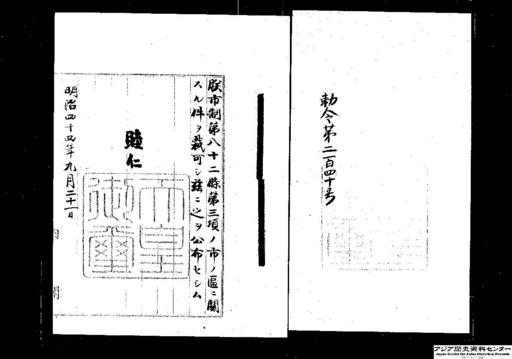 勅令第二百四十号
朕市制第八十二條第三項ノ市ノ區ニ關
スル件ヲ裁可シ茲ニ之ヲ公布セシム
睦仁
天皇御璽
明治四十四年九月二十一日
アジア歴史資料センター
Japan Center for Asian Historical Records